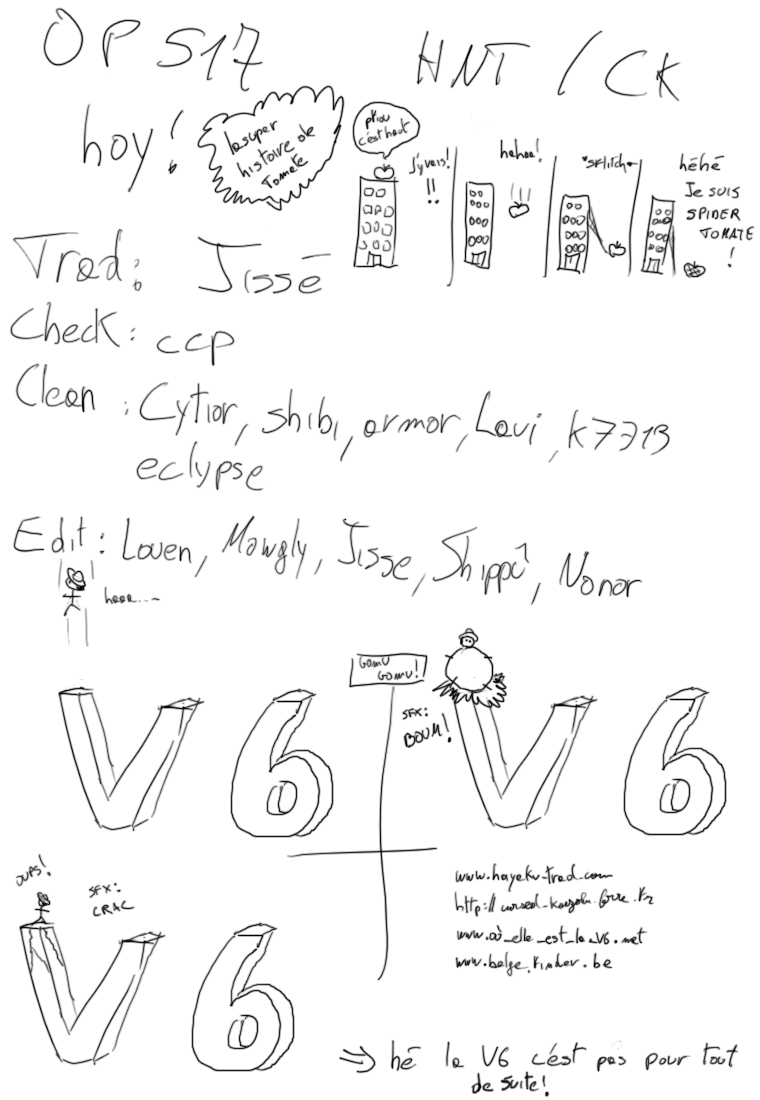 OP 517
HNT / CK
hoy!
la super
histoire de
Tomate
pfiou
c'est haut
J'y vais!
!!
hahaa!
*SPLITCH*
héhé
Je suis
SPIDER
TOMATE
!
Trad: Jissé
Check: ccp
Clean: Cytior, shibi, armor, Lavi, K7713
eclypse
Edit: Louen, Mowgly, Jisse, Shippû, Nonor
haaa....
V6
GOMU
GOMU!
SFX:
BOUM!
V6
OUPS!
SFX:
CRAC
V6
www.hayaku-trad.com
www.où_elle_est_la_V6.net
www.belge.kinder.be
=> hé la V6 c'est pas pour tout
de suite!